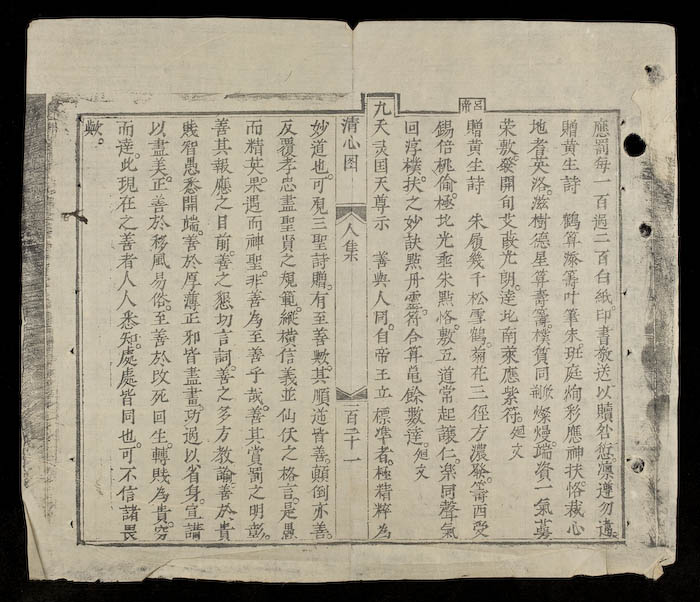 應罰每一百過二百白紙印書發送以贖咎愆凛遵勿違
贈黄生詩　鶴算添籌叶筆朱班庭絢彩應神扶恪裁心
地者英洛。滋樹德星算壽籌。樸質同　瑞資一氣
荣敷發開旬艾敢光朗。達北南菜應紫符。廻文
呂帝
贈黄生詩　朱履幾千松雪鶴。菊花三徑方濃發。籌西受
錫倍桃偷。極北光垂朱點恪。敷五道常起讓仁。樂同聲氣
回淳樸。扶之妙訣點丹靈。符合算亀餘數達。廻文
九天灵国天尊示　善與人同。自帝王立標準者。極精粹為
清心图
人集
一百二十一
妙道也。可覌三聖詩贈。有至善歟。其順道皆善。顛倒亦善。
反覆孝忠盡聖賢之規範。縱横信義並仙伏之格言。是愚
而精英。果遇而神聖。非善為至善乎哉。善其賞罰之明彰。
善其報應之目前。善之懇切言詞。善之多方教諭。善於貴
賤智愚悉開端。善於厚薄正邪皆盡畫。功過以省身。宣講
以盡美。正善於移風易俗。至善於改死回生。轉賤為貴。窮
而達。此現在之善者人人悉知。處處皆同也。可不信諸畏
歟。